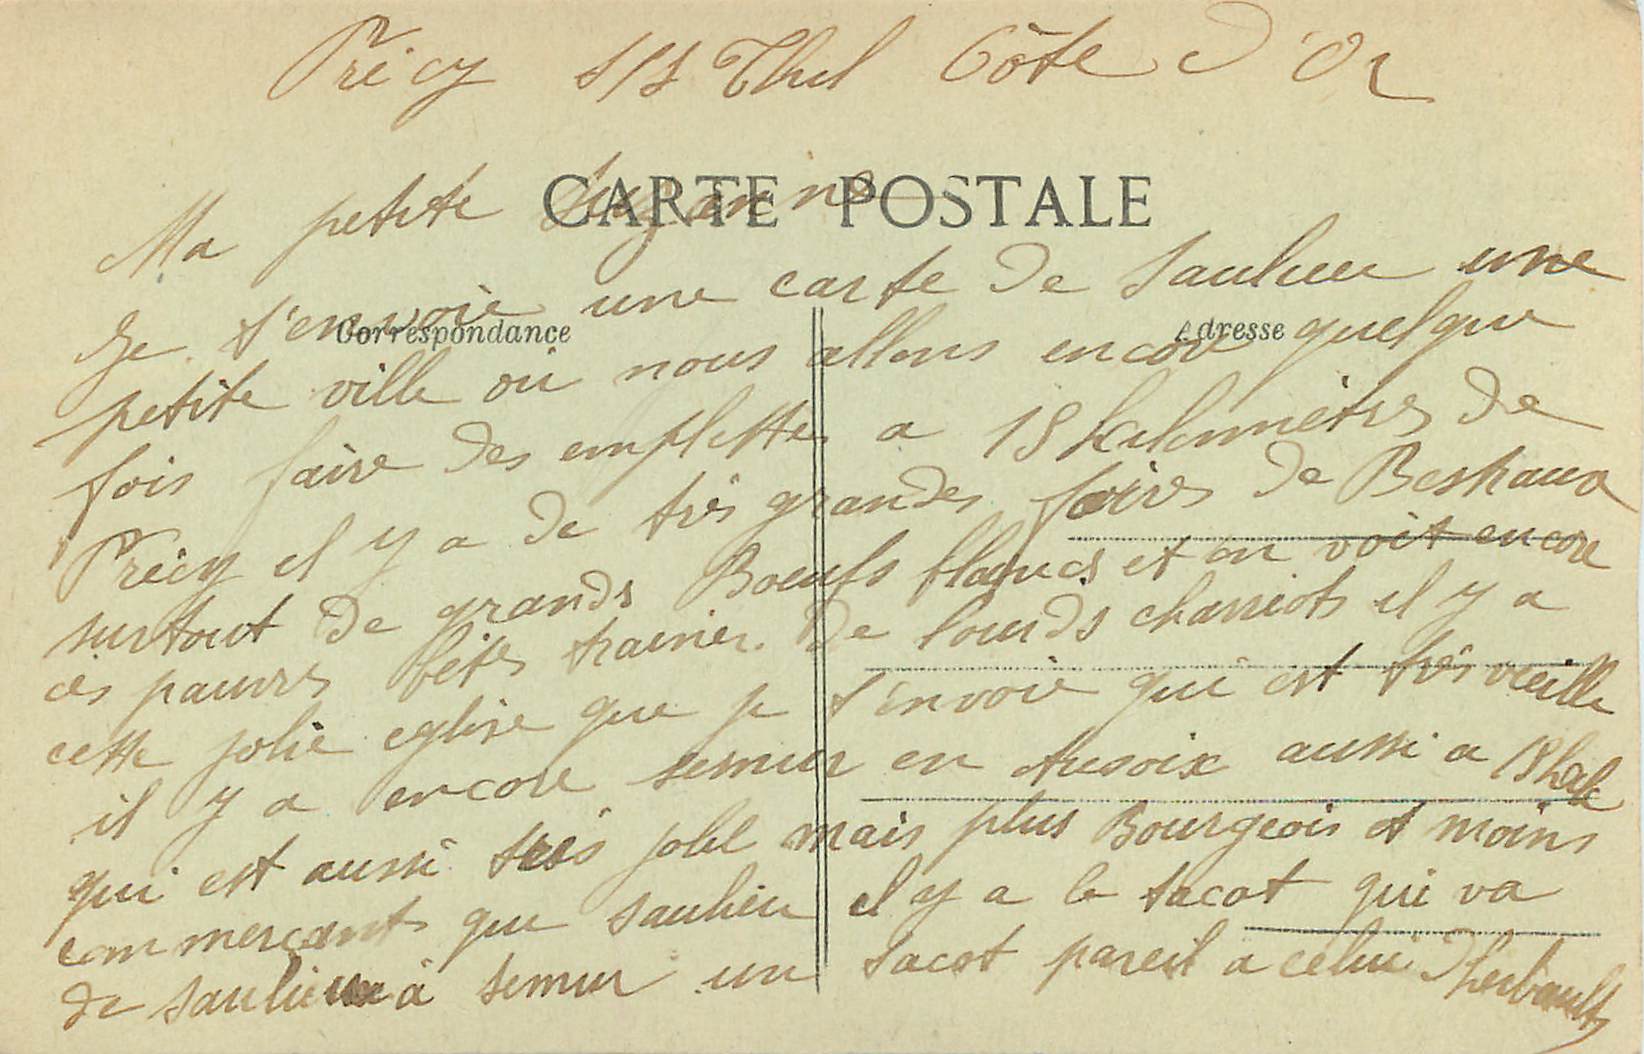 Précy s/s Thil Côte d'Or
CARTE POSTALE
Ma petite Suzanne
Je t'envoie une carte de Saulieu une
Correspondance
Adresse
petite ville où nous allons encore quelque
fois faire des emplettes a 18 kilomètres de
Précy il y a de très grandes foires de Bestiaux
surtout de grands Boeufs blancs et on voit encore
ces pauvres bêtes trainer de lourds charriots il y a
cette jolie eglise que je t'envoie qui est très vieille
il y a encore semur en Auxoix aussi a 18 kil
qui est aussi très jolie mais plus Bourgeois et moins
commerçant que saulieu il y a le tacot qui va
de saulieu à semur un tacot pareil a celui d'herbault